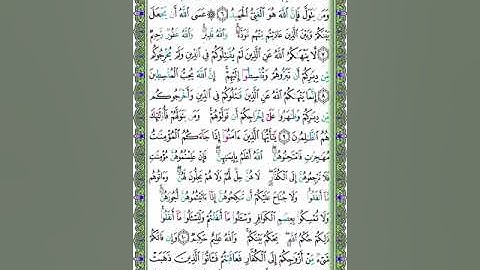 وَمَن يَتَوَلَّ فَإِنَّ ٱللَّهَ هُوَ ٱلْغَنِىُّ ٱلْحَمِيدُ ٦ ۞ عَسَى ٱللَّهُ أَن يَجْعَلَ
بَيْنَكُمْ وَبَيْنَ ٱلَّذِينَ عَادَيْتُم مِّنْهُم مَّوَدَّةً ۚ وَٱللَّهُ قَدِيرٌ ۚ وَٱللَّهُ غَفُورٌ رَّحِيمٌ
٧ لَّا يَنْهَىٰكُمُ ٱللَّهُ عَنِ ٱلَّذِينَ لَمْ يُقَٰتِلُوكُمْ فِى ٱلدِّينِ وَلَمْ يُخْرِجُوكُم
مِّن دِيَٰرِكُمْ أَن تَبَرُّوهُمْ وَتُقْسِطُوٓا۟ إِلَيْهِمْ ۚ إِنَّ ٱللَّهَ يُحِبُّ ٱلْمُقْسِطِينَ
٨ إِنَّمَا يَنْهَىٰكُمُ ٱللَّهُ عَنِ ٱلَّذِينَ قَٰتَلُوكُمْ فِى ٱلدِّينِ وَأَخْرَجُوكُم
مِّن دِيَٰرِكُمْ وَظَٰهَرُوا۟ عَلَىٰٓ إِخْرَاجِكُمْ أَن تَوَلَّوْهُمْ ۚ وَمَن يَتَوَلَّهُمْ فَأُو۟لَٰٓئِكَ
هُمُ ٱلظَّٰلِمُونَ ٩ يَٰٓأَيُّهَا ٱلَّذِينَ ءَامَنُوٓا۟ إِذَا جَآءَكُمُ ٱلْمُؤْمِنَٰتُ
مُهَٰجِرَٰتٍ فَٱمْتَحِنُوهُنَّ ۖ ٱللَّهُ أَعْلَمُ بِإِيمَٰنِهِنَّ ۖ فَإِنْ عَلِمْتُمُوهُنَّ مُؤْمِنَٰتٍ
فَلَا تَرْجِعُوهُنَّ إِلَى ٱلْكُفَّارِ ۖ لَا هُنَّ حِلٌّ لَّهُمْ وَلَا هُمْ يَحِلُّونَ لَهُنَّ ۖ وَءَاتُوهُم
مَّآ أَنفَقُوا۟ ۚ وَلَا جُنَاحَ عَلَيْكُمْ أَن تَنكِحُوهُنَّ إِذَآ ءَاتَيْتُمُوهُنَّ أُجُورَهُنَّ ۚ
وَلَا تُمْسِكُوا۟ بِعِصَمِ ٱلْكَوَافِرِ وَسْـَٔلُوا۟ مَآ أَنفَقْتُمْ وَلْيَسْـَٔلُوا۟ مَآ أَنفَقُوا۟ ۚ
ذَٰلِكُمْ حُكْمُ ٱللَّهِ ۖ يَحْكُمُ بَيْنَكُمْ ۚ وَٱللَّهُ عَلِيمٌ حَكِيمٌ ١٠ وَإِن فَاتَكُمْ
شَىْءٌ مِّنْ أَزْوَٰجِكُمْ إِلَى ٱلْكُفَّارِ فَعَاقَبْتُمْ فَـَٔاتُوا۟ ٱلَّذِينَ ذَهَبَتْ